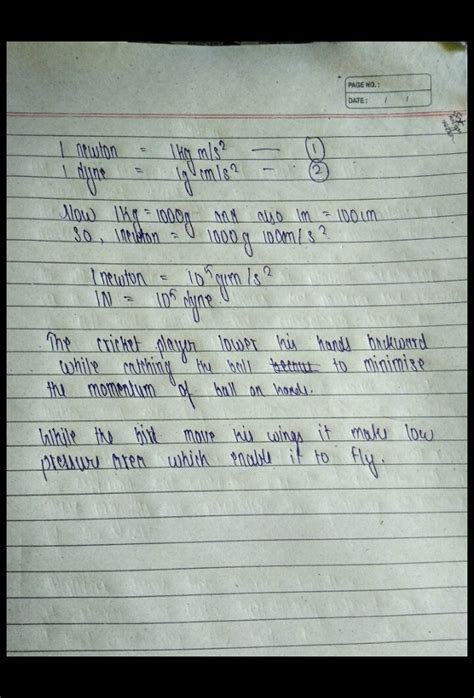 PAGE NO. :
DATE : / /
1 newton = 1kg m/s² — ①
1 dyne = 1g cm/s² — ②
Now 1kg = 1000g and also 1m = 100cm
so, 1newton = 1000g 100m/s²
1newton = 10⁵gcm/s²
1N = 10⁵ dyne
The cricket player lower his hands backward
while catching the ball to minimise
the momentum of ball on hands.
While the bird move his wings it make low
pressure area which enable it to fly.